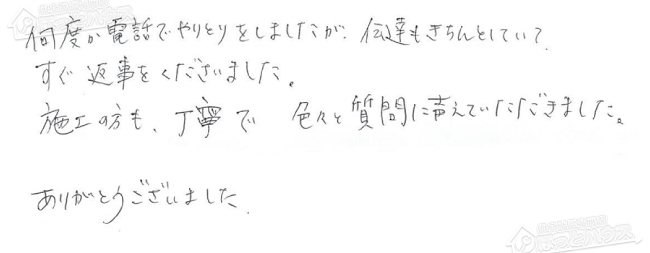 何度か電話でやりとりをしましたが、伝達もきちんとしていて、
すぐ返事をくださいました。
施工の方も、丁寧で 色々と質問に答えていただきました。
ありがとうございました。